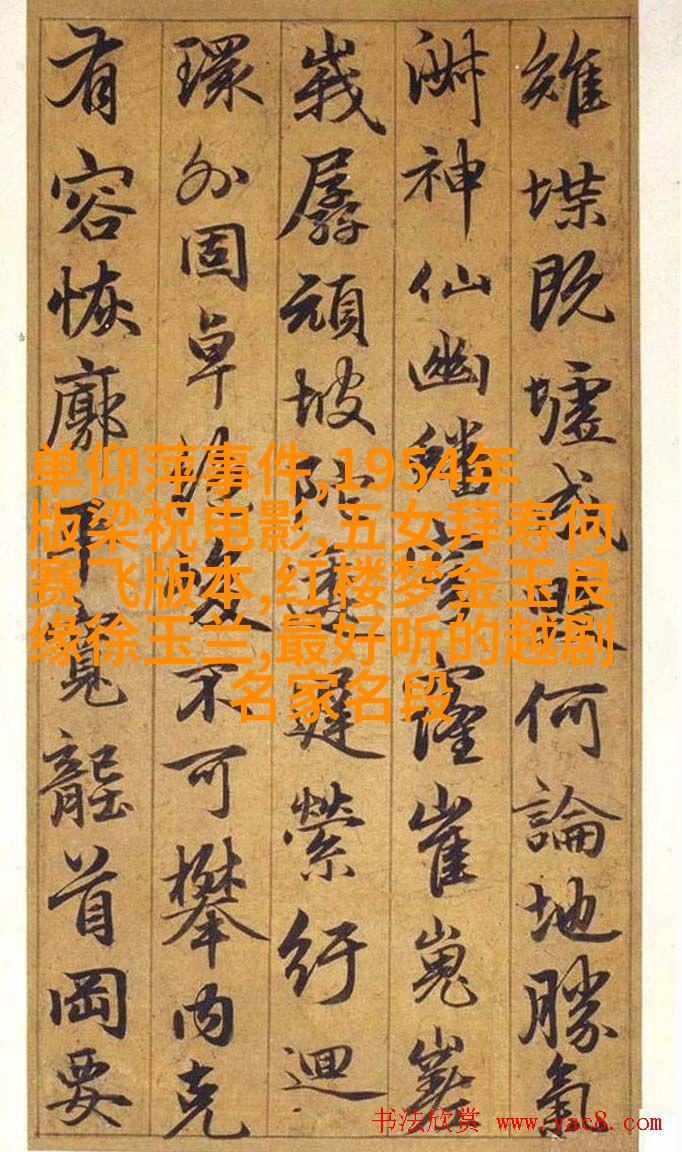 雉堞既墟何論地勝氣
神仙幽窿崔嵬
峩孱頑坡陀縈紆迴
環外固卓不可攀内克
有容恢廓首岡要
单仰萍事件,1954年
版梁祝电影,五女拜寿何
赛飞版本,红楼梦金玉良
缘徐玉兰,最好听的越剧
名家名段
书法欣赏 www.yac8.com